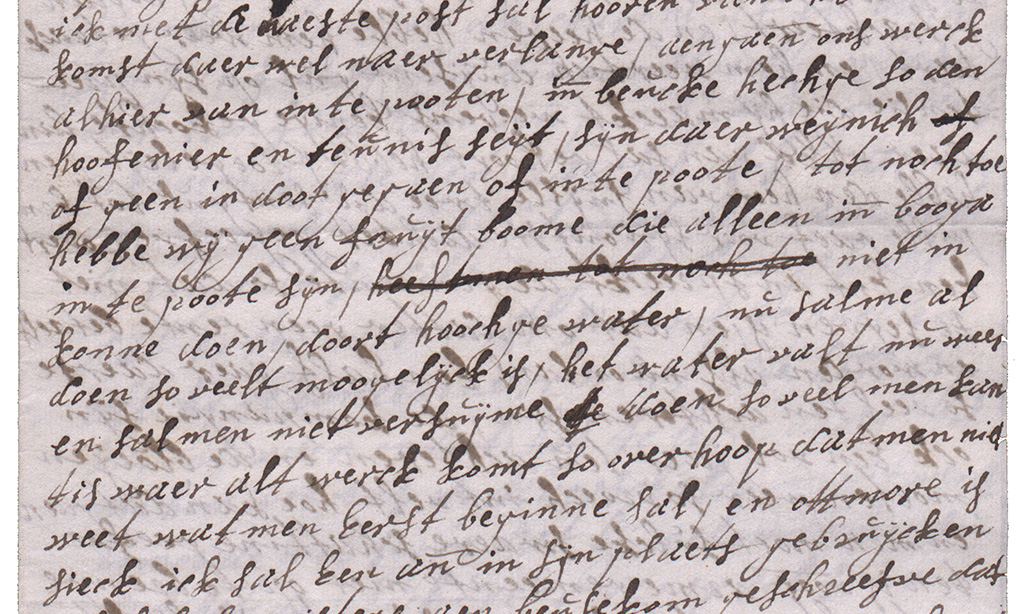 ick met de naeste post sal hooren van
komst daer wel naer verlange, aengaen ons werck
alhier van in te pooten, in beucke hechge so den
hoofenier en teunis seijt, sijn daer weijnich of
of geen in doot gegaen of in te poote, tot noch toe
hebbe wij geen fruijt boome die alleen in booga
in te poote sijn, heeft men tot noch toe niet in
konne doen, doort hoochge water, nu salme al
doen so veelt moogelijck is, het water valt nu weer
en sal men niet versuijme te doen so veel men kan
tis waer alt werck komt so over hoop dat men niet
weet wat men eerst beginne sal, en ottmore is
sieck ick sal een an in sijn plaets gebruijcken
geschreefve dat